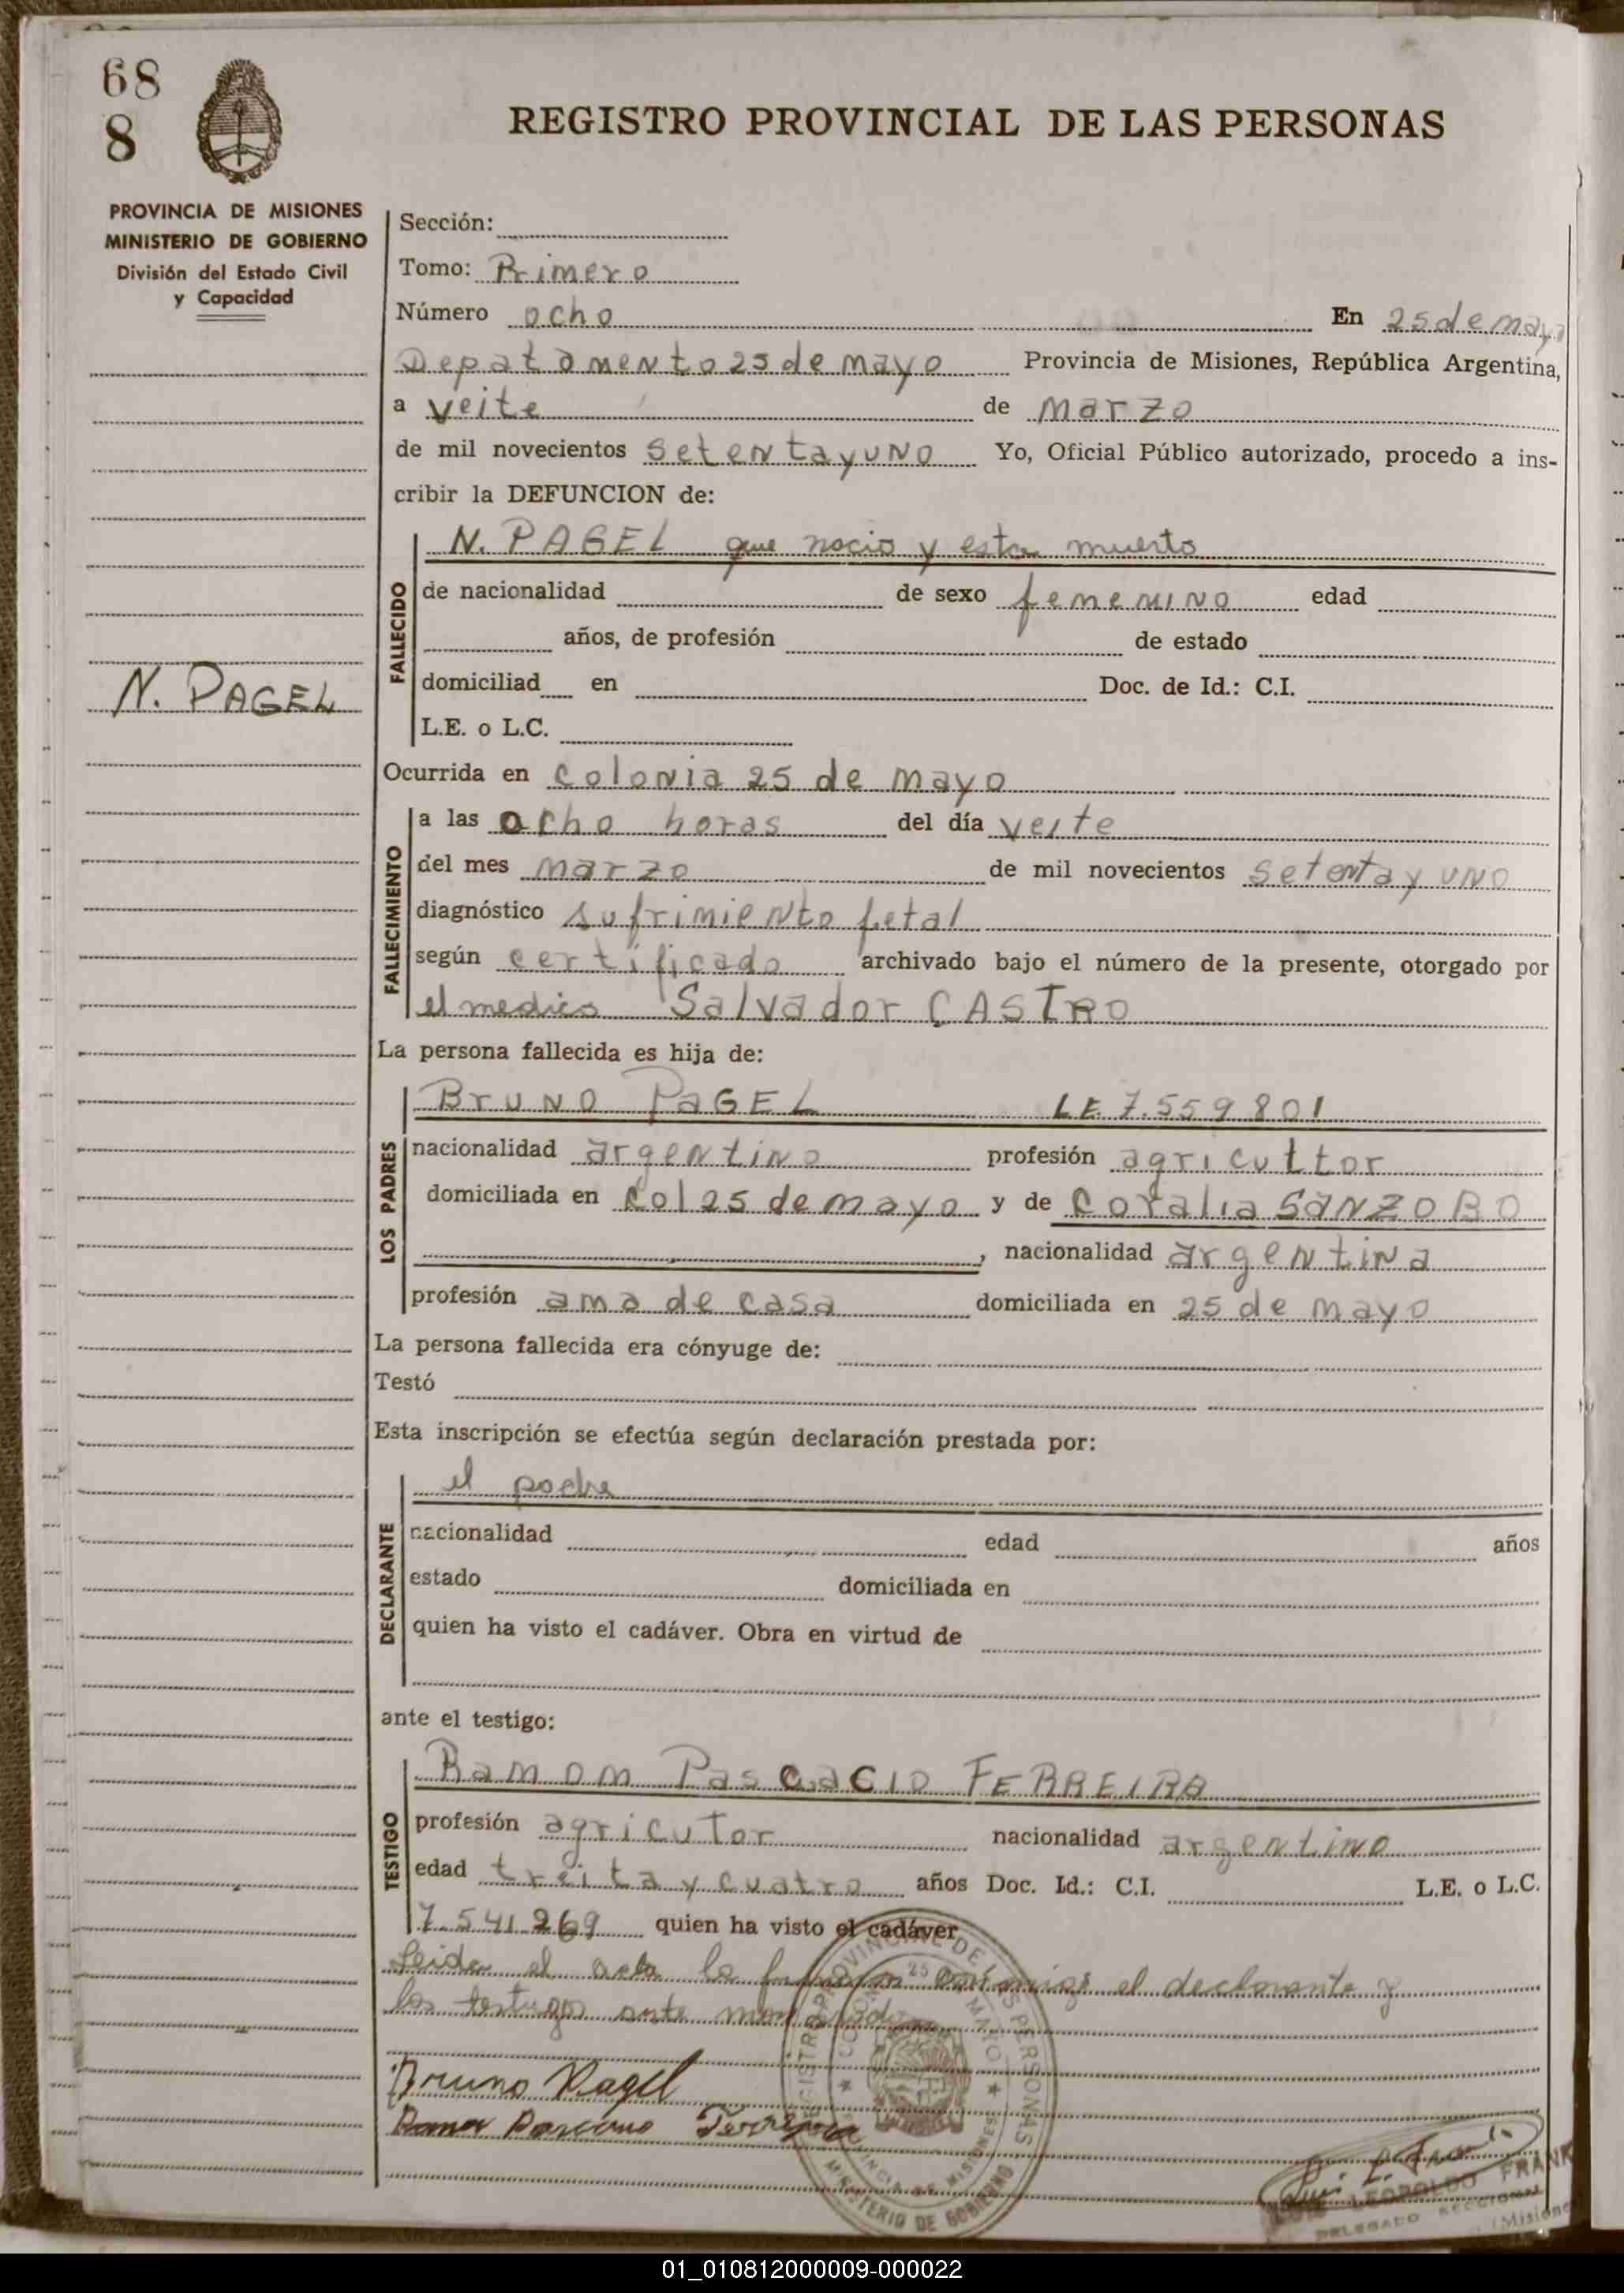 68
8
REGISTRO PROVINCIAL DE LAS PERSONAS
PROVINCIA DE MISIONES
MINISTERIO DE GOBIERNO
División del Estado Civil
y Capacidad
Sección:
Tomo: Primero
Número ocho En 25 de mayo
Depatamento 25 de mayo Provincia de Misiones, República Argentina,
a veite de marzo
de mil novecientos setenta y uno Yo, Oficial Público autorizado, procedo a ins-
cribir la DEFUNCION de:
N. PAGEL que nacio y esta muerto
FALLECIDO
de nacionalidad de sexo femenino edad
años, de profesión de estado
N. PAGEL
domiciliad en Doc. de Id.: C.I.
L.E. o L.C.
Ocurrida en colonia 25 de mayo
FALLECIMIENTO
a las ocho horas del día veite
del mes marzo de mil novecientos setenta y uno
diagnóstico sufrimiento fetal
según certificado archivado bajo el número de la presente, otorgado por
el medico Salvador CASTRO
La persona fallecida es hija de:
LOS PADRES
Bruno PAGEL LE 7.559.801
nacionalidad argentino profesión agricultor
domiciliada en col 25 de mayo y de Coralia SANZOBO
, nacionalidad argentina
profesión ama de casa domiciliada en 25 de mayo
La persona fallecida era cónyuge de:
Testó
Esta inscripción se efectúa según declaración prestada por:
DECLARANTE
el padre
nacionalidad edad años
estado domiciliada en
quien ha visto el cadáver. Obra en virtud de
ante el testigo:
TESTIGO
Ramom Pascacio FERREIRA
profesión agricutor nacionalidad argentino
edad treita y cuatro años Doc. Id.: C.I. L.E. o L.C.
7.541.269 quien ha visto el cadáver
Leida el acta la firman conmigo el declarante y
los testigos ante
Bruno Pagel
Ferreira
REGISTRO PROVINCIAL DE LAS PERSONAS
MINISTERIO DE GOBIERNO
LUIS LEOPOLDO FRANK
DELEGADO SECCIONAL
(Misiones
01_010812000009-000022